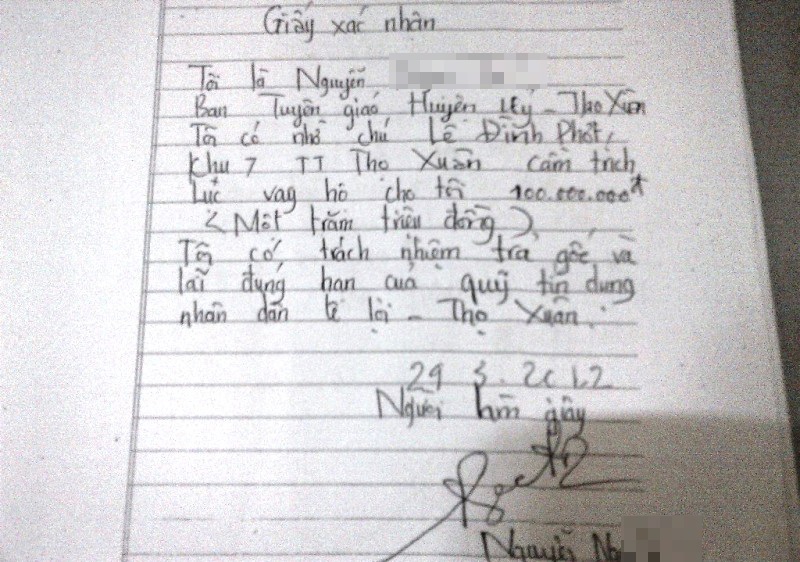 Giấy xác nhận
Tôi là Nguyễn
Ban Tuyên giáo Huyện uỷ - Thọ Xuân
Tôi có nhờ chú Lê Đình Phót,
Khu 7 TT Thọ Xuân cầm trích
Lục vay hộ cho tôi 100.000.000đ
(Một trăm triệu đồng)
Tôi có trách nhiệm trả gốc và
lãi đúng hạn của quỹ tín dụng
nhân dân tê lợi - Thọ Xuân.
29 3. 2012
Người làm giấy
Nguyễn